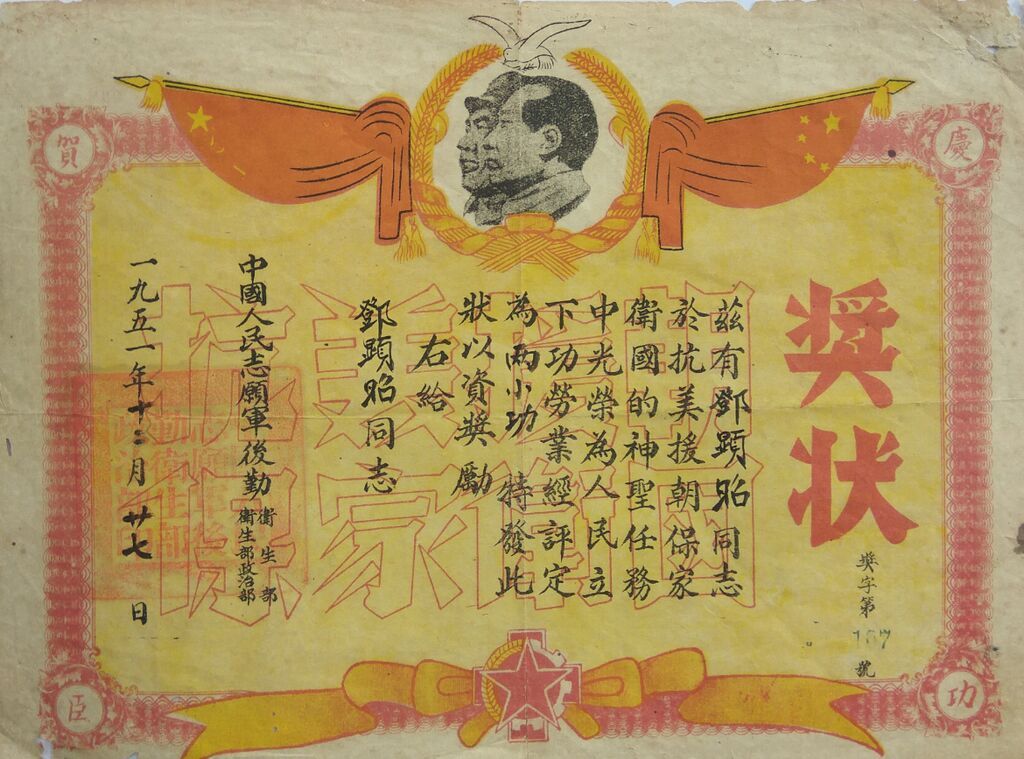 慶賀功臣
奬状
奬字第 號
茲有鄧顕昭同志
於抗美援朝保家
衛國的神聖任務
中光榮為人民立
下功勞業經評定
為兩小功 特發此
狀以資奬勵
右給
鄧顕昭同志
中國人民志願軍後勤
衛生部
衛生部政治部
一九五一年十二月廿七日
抗美援朝
保家衛國